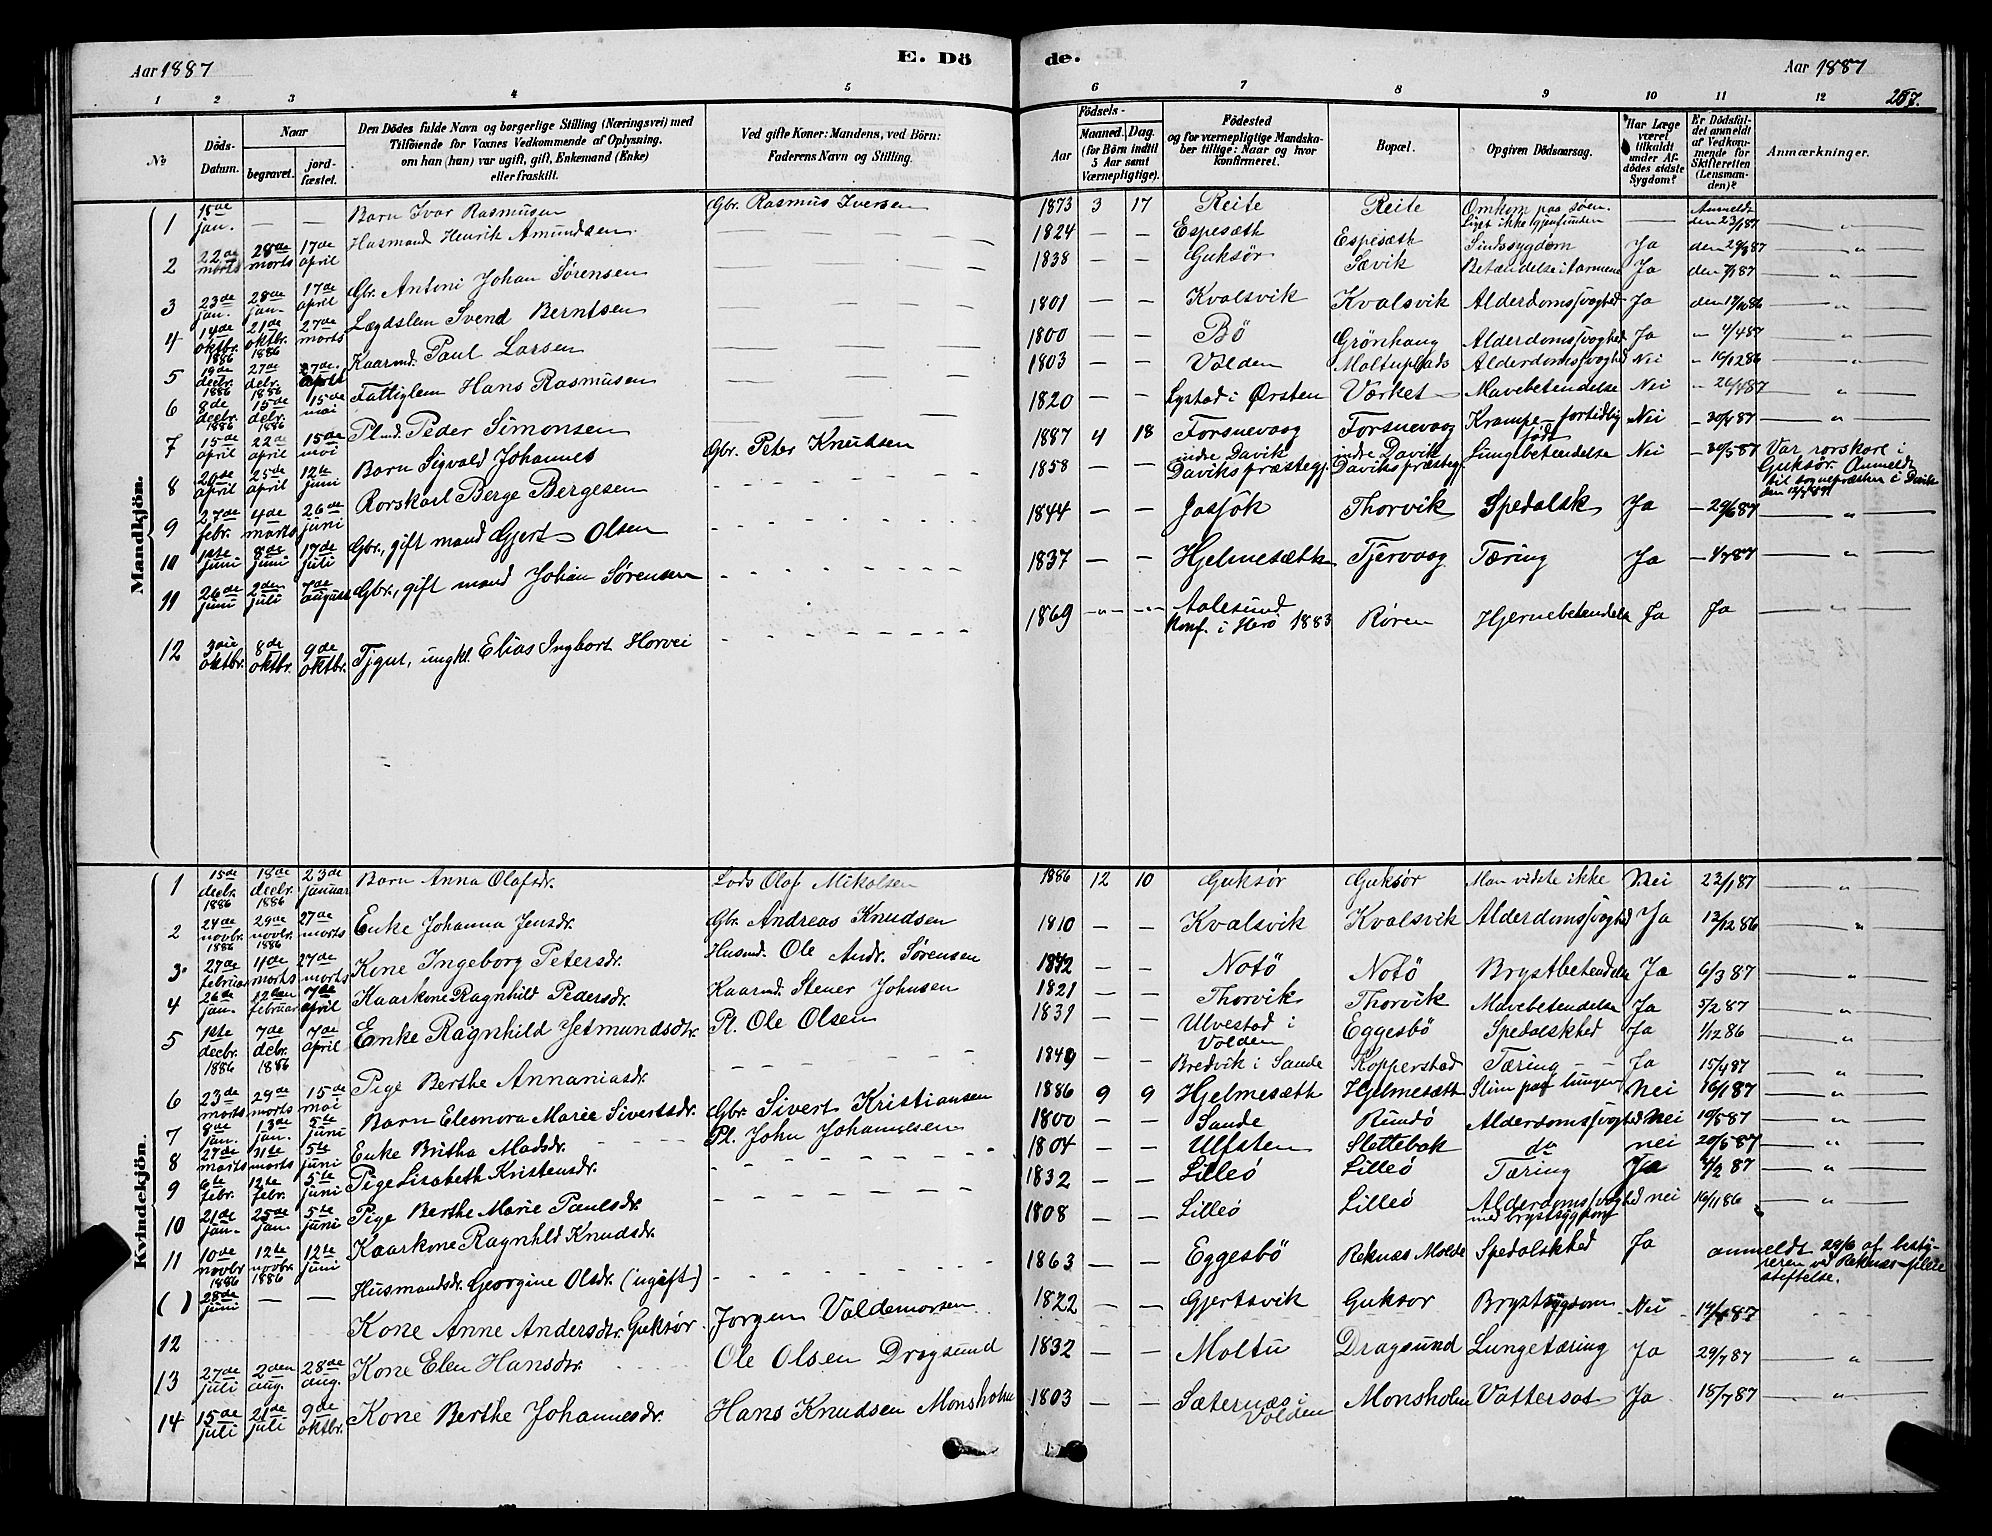 Aar 1887
E. Dö
de.
Aar 1887
257.
1 2 3 4 5 6 7 8 9 10 11 12
No
Döds-Datum.
Naar
begravet.
jord-fæstet.
Den Dödes fulde Navn og borgerlige Stilling (Næringsvei) med
Tilföiende for Voxnes Vedkommende af Oplysning,
om han (hun) var ugift, gift, Enkemand (Enke)
eller fraskilt.
Ved gifte Koner: Mandens, ved Börn:
Faderens Navn og Stilling.
Födsels-
Aar
Maaned. Dag.
(for Börn indtil
5 Aar samt
Værnepligtige).
Födested
og for værnepligtige Mandska-
ber tillige: Naar og hvor
konfirmeret.
Bopæl.
Opgiven Dödsaarsag.
Har Læge
været
tilkaldt
under Af-
dödes sidste
Sygdom?
Er Dödsfal-
det anmeldt
af Vedkom-
mende for
Skifteretten
(Lensman-
den)?
Anmærkninger.
Mandkjön.
1 18de jan. — — Barn Ivar Rasmusen Gbr. Rasmus Iversen 1873 3 17 Reite Reite Omkom paa søen. Liget ikke gjenfunden — Anmeldt den 23/1 87 „
2 22de marts 28de marts 17de april Husmand Henrik Amundsen — 1824 — — Espesæth Espesæth Sindssygdom Ja den 29/3 87 „
3 23de jan. 28de jan. 17de april Gbr. Antoni Johan Sørensen — 1838 — — Guksør Sævik Betændelse i tarmene Ja „
4 14de oktbr. 1886 21de oktbr. 1886 27de marts Lægdslem Svend Berntsen — 1801 — — Kvalsvik Kvalsvik Alderdomssvaghed Ja „
5 19de decbr. 1886 27de decbr. 1886 27de april Kaarmd. Paul Larsen — 1800 — — Bö Grönhaug Alderdomssvaghed Ja — 4/4 87
6 8de decbr. 1886 15de decbr. 1886 15de mai Fattiglem Hans Rasmusen — 1803 — — Volden Moltuplads Alderdomssvaghed Nei — 19/12 86 „
7 15de april 22de april 15de mai Plmd. Peder Simonsen — 1820 — — Lystad i Ørsten Værket Mavebetendelse Nei — 26/4 87 „
8 20de april 25de april 12te juni Barn Sigvald Johannes Gbr. Peter Knutsen 1887 4 18 Forsnevaag Forsnevaag Krampe fortidlig født Nei — 30/4 87 „
9 27de febr. 4de marts 26de juni Rorskarl Berge Bergesen 1858 — — indre Davik Daviks præstegj. indre Davik Daviks præstegj. Lungebetendelse Nei — 30/5 87 Var rorskare i Guksør. Anmeldt til sognepræsten i Davik
10 1ste juni 8de juni 17de juli Gbr., gift mand Gjert Olsen 1844 — — Jøsok Thorvik Spedalsk Ja — 29/6 87 „
11 26de juni 2den juli 7de august Gbr., gift mand Johan Sørensen 1837 — — Hjelmesæth Tjervaag Tæring Ja — 4/7 87 „
12 3die oktbr. 8de oktbr. 9de oktbr. Tjgut, ungkl. Elias Ingbort Horvei 1869 „ „ Aalesund Konf. i Herø 1883 Røren Hjernebetendelse Ja Ja „
Kvindekjön.
1 15de decbr. 1886 18de decbr. 1886 23de januar Barn Anna Olafsdr. Lods Olaf Mikalsen 1886 12 10 Guksør Guksør Man vidste ikke Nei 23/1 87 „
2 24de novbr. 1886 29de novbr. 1886 27de marts Enke Johanna Jensdr. Gbr. Andreas Knudsen 1810 — — Kvalsvik Kvalsvik Alderdomssvaghed Ja 13/12 86 „
3 27de februar 4de marts 27de marts Kone Ingeborg Petersdr. Husmd. Ole Andr. Sørensen 1842 — — Notö Notö Brystbetendelse Ja 6/3 87 „
4 26de jan. 12den februar 7de april Kaarkone Ragnhild Pedersdr. Kaarmd. Stener Johnsen 1821 — — Thorvik Thorvik Mavebetendelse Ja 5/2 87 „
5 1ste decbr. 1886 7de decbr. 1886 7de april Enke Ragnhild Jetmundsdtr. Pl. Ole Olsen 1831 — — Ulvestad i Volden Eggesbö Spedalskhed Ja 1/12 86 „
6 23de marts 29de marts 15de mai Pige Berthe Annaniasdr. 1849 — — Bredvik i Sande Kopperstad Tæring Ja 15/4 87 „
7 8de jan. 13de jan. 5te juni Barn Eleonora Marie Sivertsdr. Gbr. Sivert Kristiansen 1886 9 9 Hjelmesæth Hjelmesæth Slim paa lungen Nei 16/1 87 „
8 27de marts 31te marts 5te juni Enke Britha Madsdr. Pl. John Johannesen 1800 — — Sande Rundö Alderdomssvaghed Nei 19/5 87 „
9 6te febr. 12te febr. 5te juni Pige Lisabeth Kristensdr. 1804 — — Ulfsten Slettebak do nei 20/5 87 „
10 21de jan. 25de jan. 5te juni Pige Berthe Marie Paulsdr. 1832 — — Lilleö Lilleö Tæring Ja 4/2 87 „
11 10de novbr. 1886 12te novbr. 1886 12te juni Kaarkone Ragnhld Knudsdr. 1808 — — Lilleö Lilleö Alderdomssvaghed med brystsygdom nei 16/11 86 „
( ) 28de juni — — Husmandsdr. Georgine Olsdr. (ugift) 1863 — — Eggesbö Reknæs Molde Spedalskhed Ja anmeldt 29/6 af besty-reren ved Reknæs pleiestiftelse.
12 Kone Anne Andersdtr. Guksør Jørgen Valdemarsen 1822 — — Gjertsvik Guksør Brystsygdom Nei
13 27de juli 2den aug. 28de aug. Kone Elen Hansdtr. Ole Olsen Dragsund 1832 — — Moltu Dragsund Lungetæring Ja 29/7 87 „
14 15de juli 21de juli 9de oktbr. Kone Berthe Johannesdr. Hans Knudsen Monsholm 1803 — — Sæternæs i Volden Monsholm Vattersot Ja 18/7 87 „